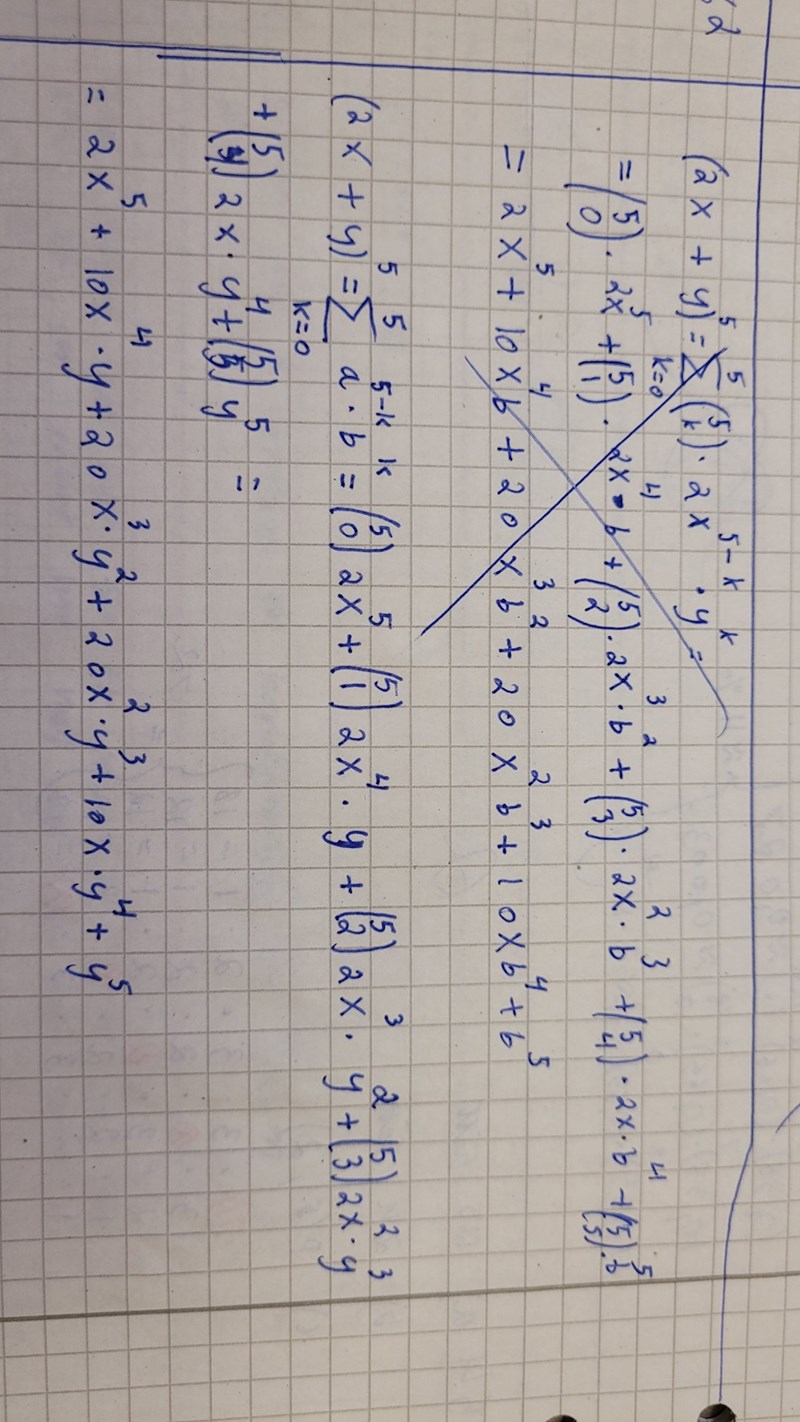 2
(2x + y)⁵ = ∑⁵ₖ₌₀ (5 k) · 2x⁵⁻ᵏ · yᵏ =
= (5 0) · 2x⁵ + (5 1) · 2x⁴ · b + (5 2) · 2x³ · b² + (5 3) · 2x² · b³ + (5 4) · 2x · b⁴ + (5 5) · b⁵
= 2x⁵ + 10x⁴b + 20x³b² + 20x²b³ + 10xb⁴ + b⁵
(2x + y)⁵ = ∑⁵ₖ₌₀ a⁵⁻ᵏ · bᵏ = (5 0) 2x⁵ + (5 1) 2x⁴ · y + (5 2) 2x³ · y² + (5 3) 2x² · y³
+ (5 4) 2x · y⁴ + (5 5) y⁵ =
= 2x⁵ + 10x⁴ · y + 20x³ · y² + 20x² · y³ + 10x · y⁴ + y⁵